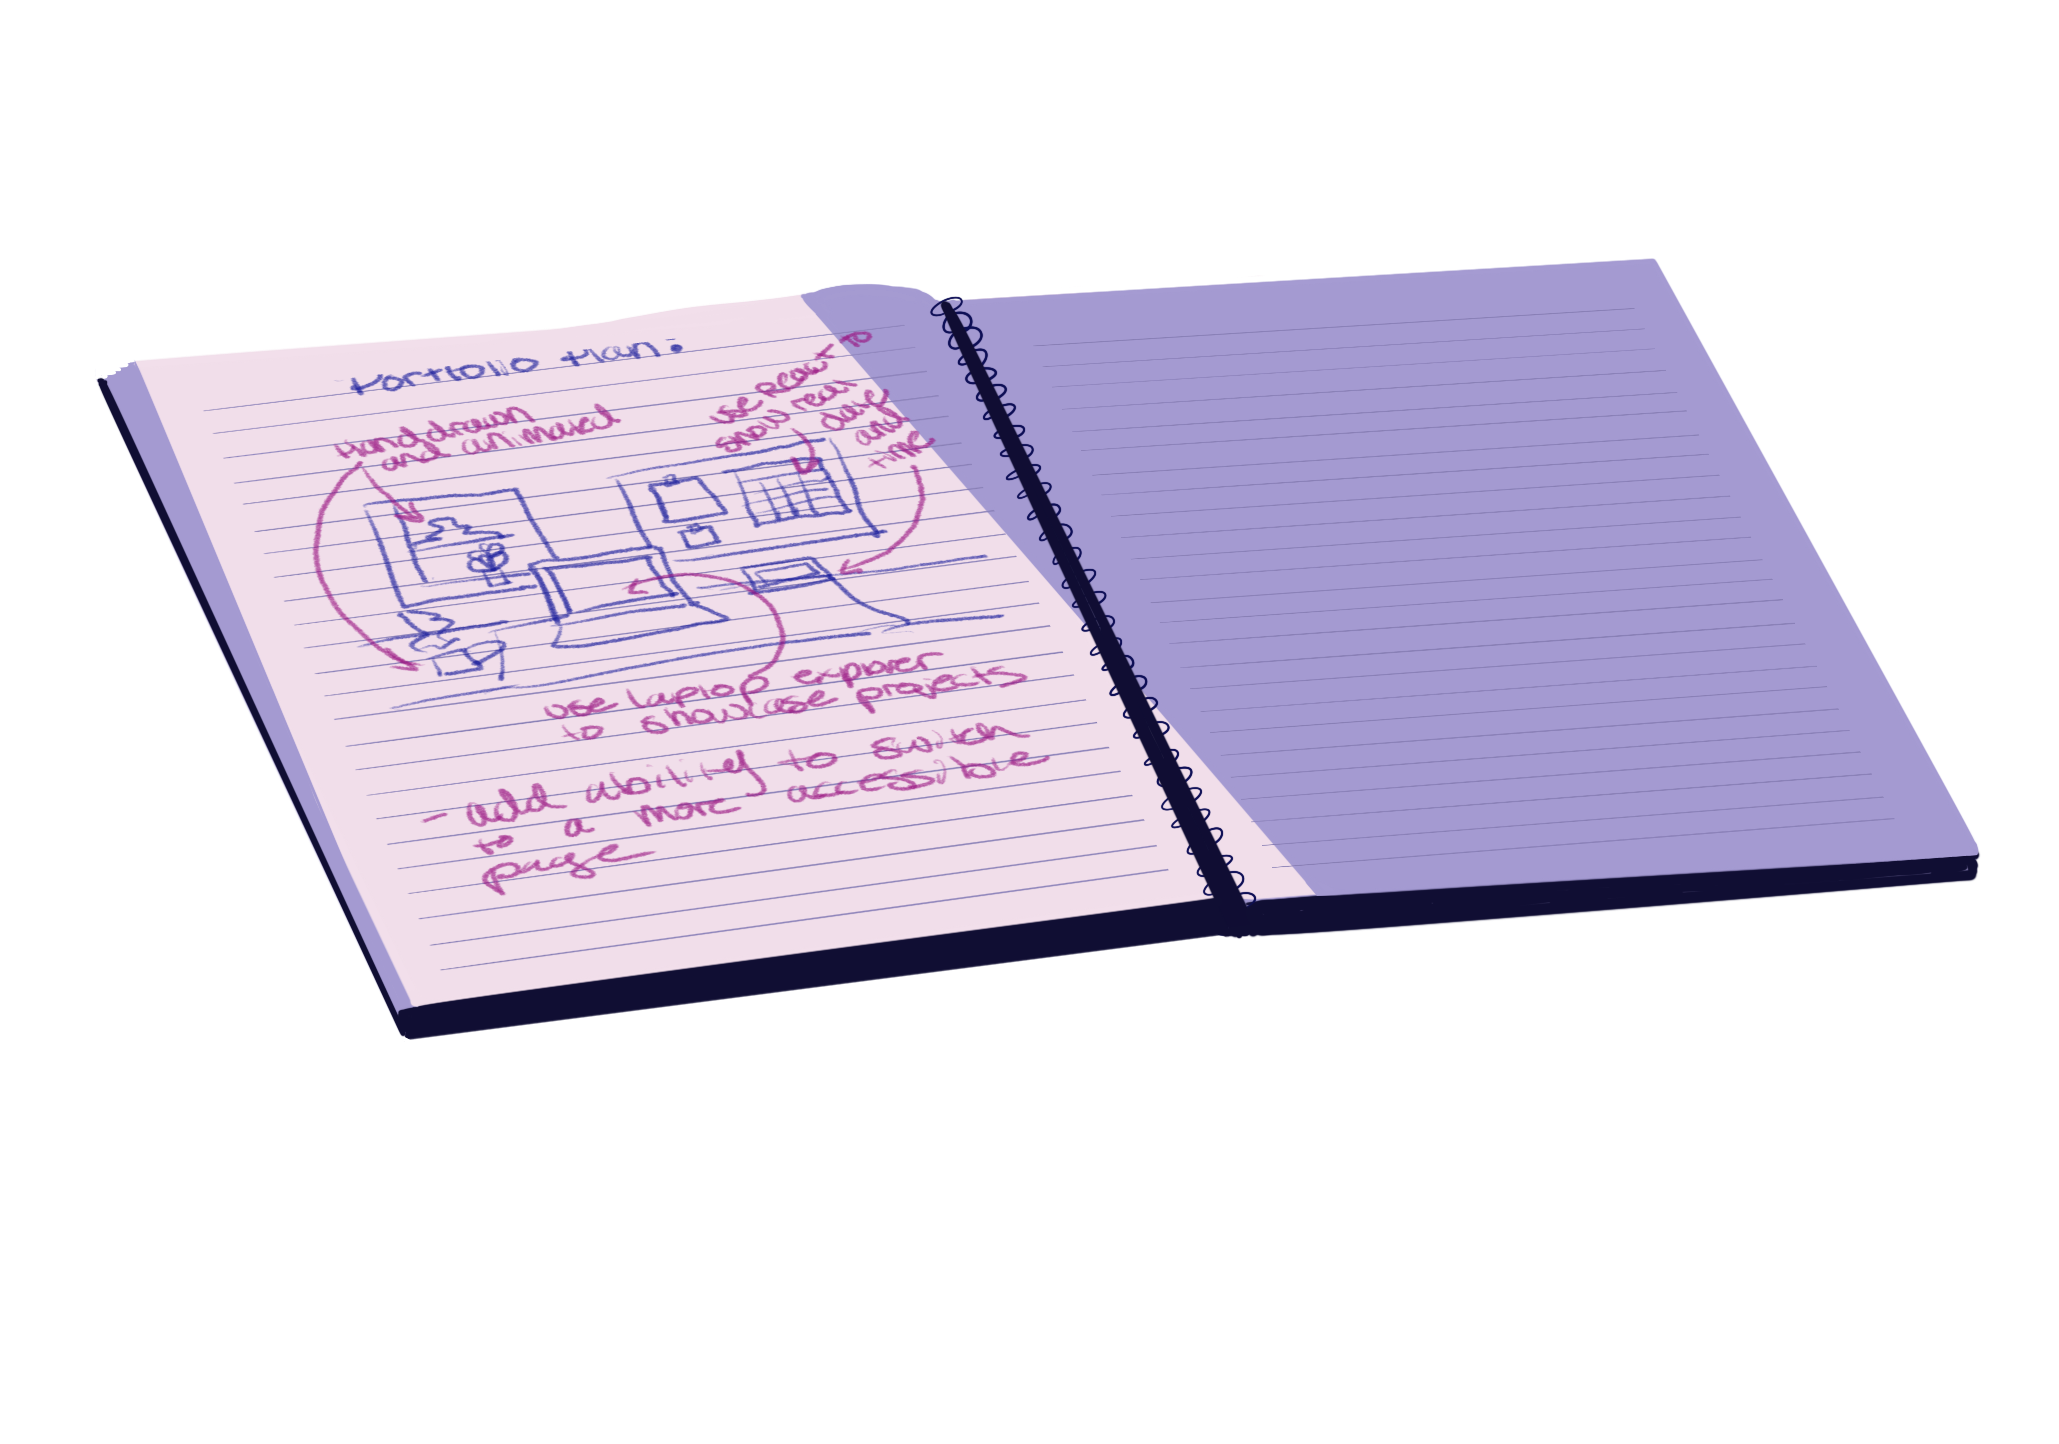 Portfolio Plan:
Handdrawn
and animated
use React to
show real
date
and
time
use laptop explorer
to showcase projects
- add ability to switch
to a more accessible
page